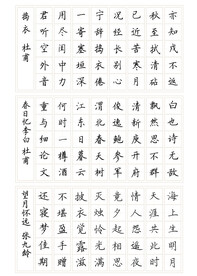 亦知戍不返
秋至拭清砧
已近苦寒月
况经长别心
宁辞捣衣倦
一寄塞垣深
用尽闺中力
君听空外音
捣衣 杜甫
白也诗无敌
飘然思不群
清新庾开府
俊逸鲍参军
渭北春天树
江东日暮云
何时一樽酒
重与细论文
春日忆李白 杜甫
海上生明月
天涯共此时
情人怨遥夜
竟夕起相思
灭烛怜光满
披衣觉露滋
不堪盈手赠
还寝梦佳期
望月怀远 张九龄